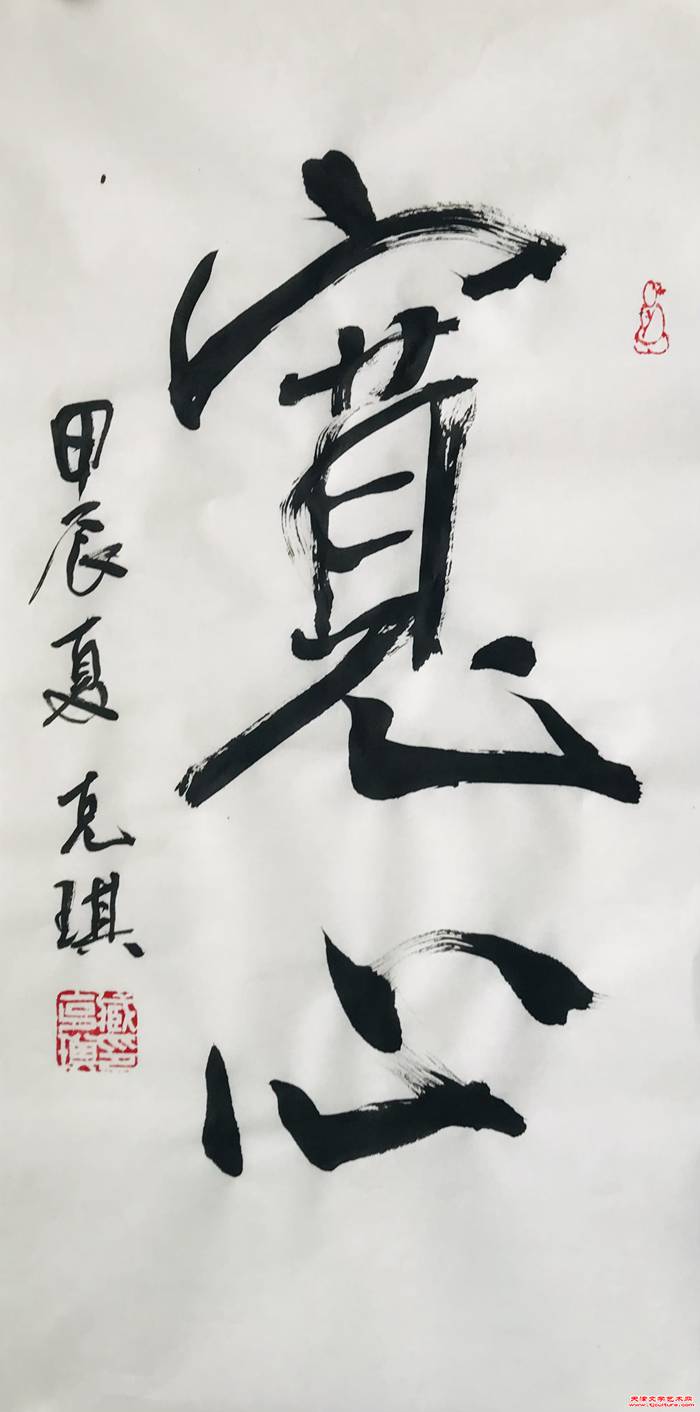 寬心
甲辰夏 克琪
天津文学艺术网
www.tjculture.com